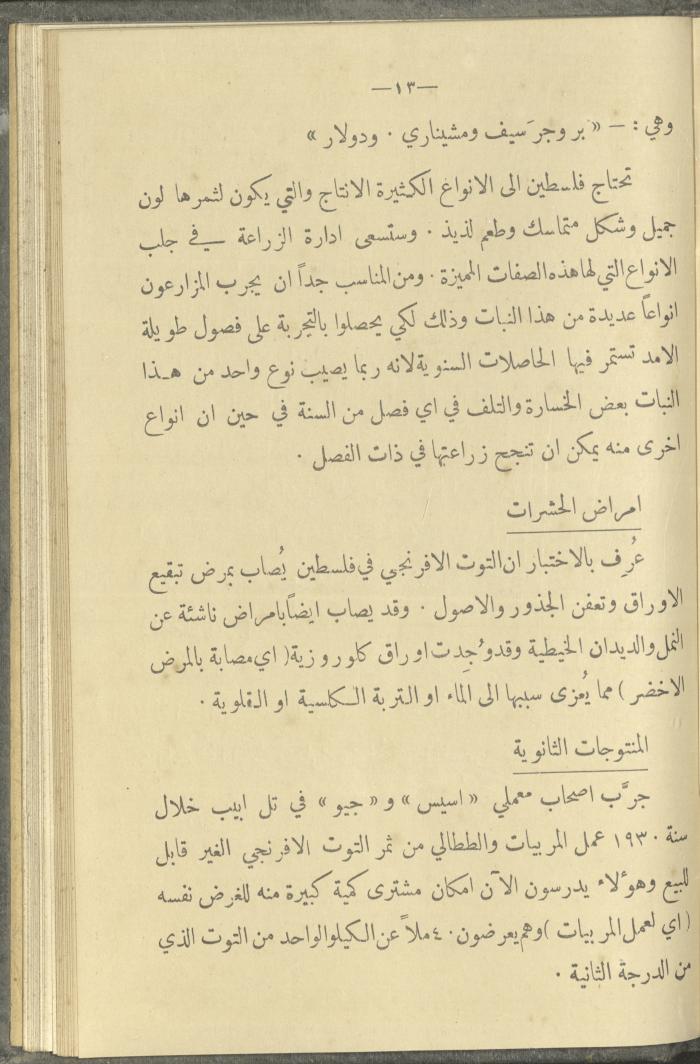 —١٣—
وهي : — « بروجرَسيف ومشيناري . ودولار »
تحتاج فلسطين الى الانواع الكثيرة الانتاج والتي يكون لثمرها لون
جميل وشكل متماسك وطعم لذيذ . وستسعى ادارة الزراعة في جلب
الانواع التي لها هذه الصفات المميزة . ومن المناسب جداً ان يجرب المزارعون
انواعاً عديدة من هذا النبات وذلك لكي يحصلوا بالتجربة على فصول طويلة
الامد تستمر فيها الحاصلات السنوية لانه ربما يصيب نوع واحد من هذا
النبات بعض الخسارة والتلف في اي فصل من السنة في حين ان انواع
اخرى منه يمكن ان تنجح زراعتها في ذات الفصل .
امراض الحشرات
عُرِف بالاختبار ان التوت الافرنجي في فلسطين يُصاب بمرض تبقيع
الاوراق وتعفن الجذور والاصول . وقد يصاب ايضاً بامراض ناشئة عن
النمل والديدان الخيطية وقد وُجِدت اوراق كلوروزية ( اي مصابة بالمرض
الاخضر ) مما يُعزى سببها الى الماء او التربة الكلسية او القلوية .
المنتوجات الثانوية
جرَّب اصحاب معملي « اسيس » و « جيو » في تل ابيب خلال
سنة ١٩٣٠ عمل المربيات والططالي من ثمر التوت الافرنجي الغير قابل
للبيع وهوءلاء يدرسون الآن امكان مشترى كمية كبيرة منه للغرض نفسه
( اي لعمل المربيات ) وهم يعرضون ٤٠ ملاً عن الكيلو الواحد من التوت الذي
من الدرجة الثانية .